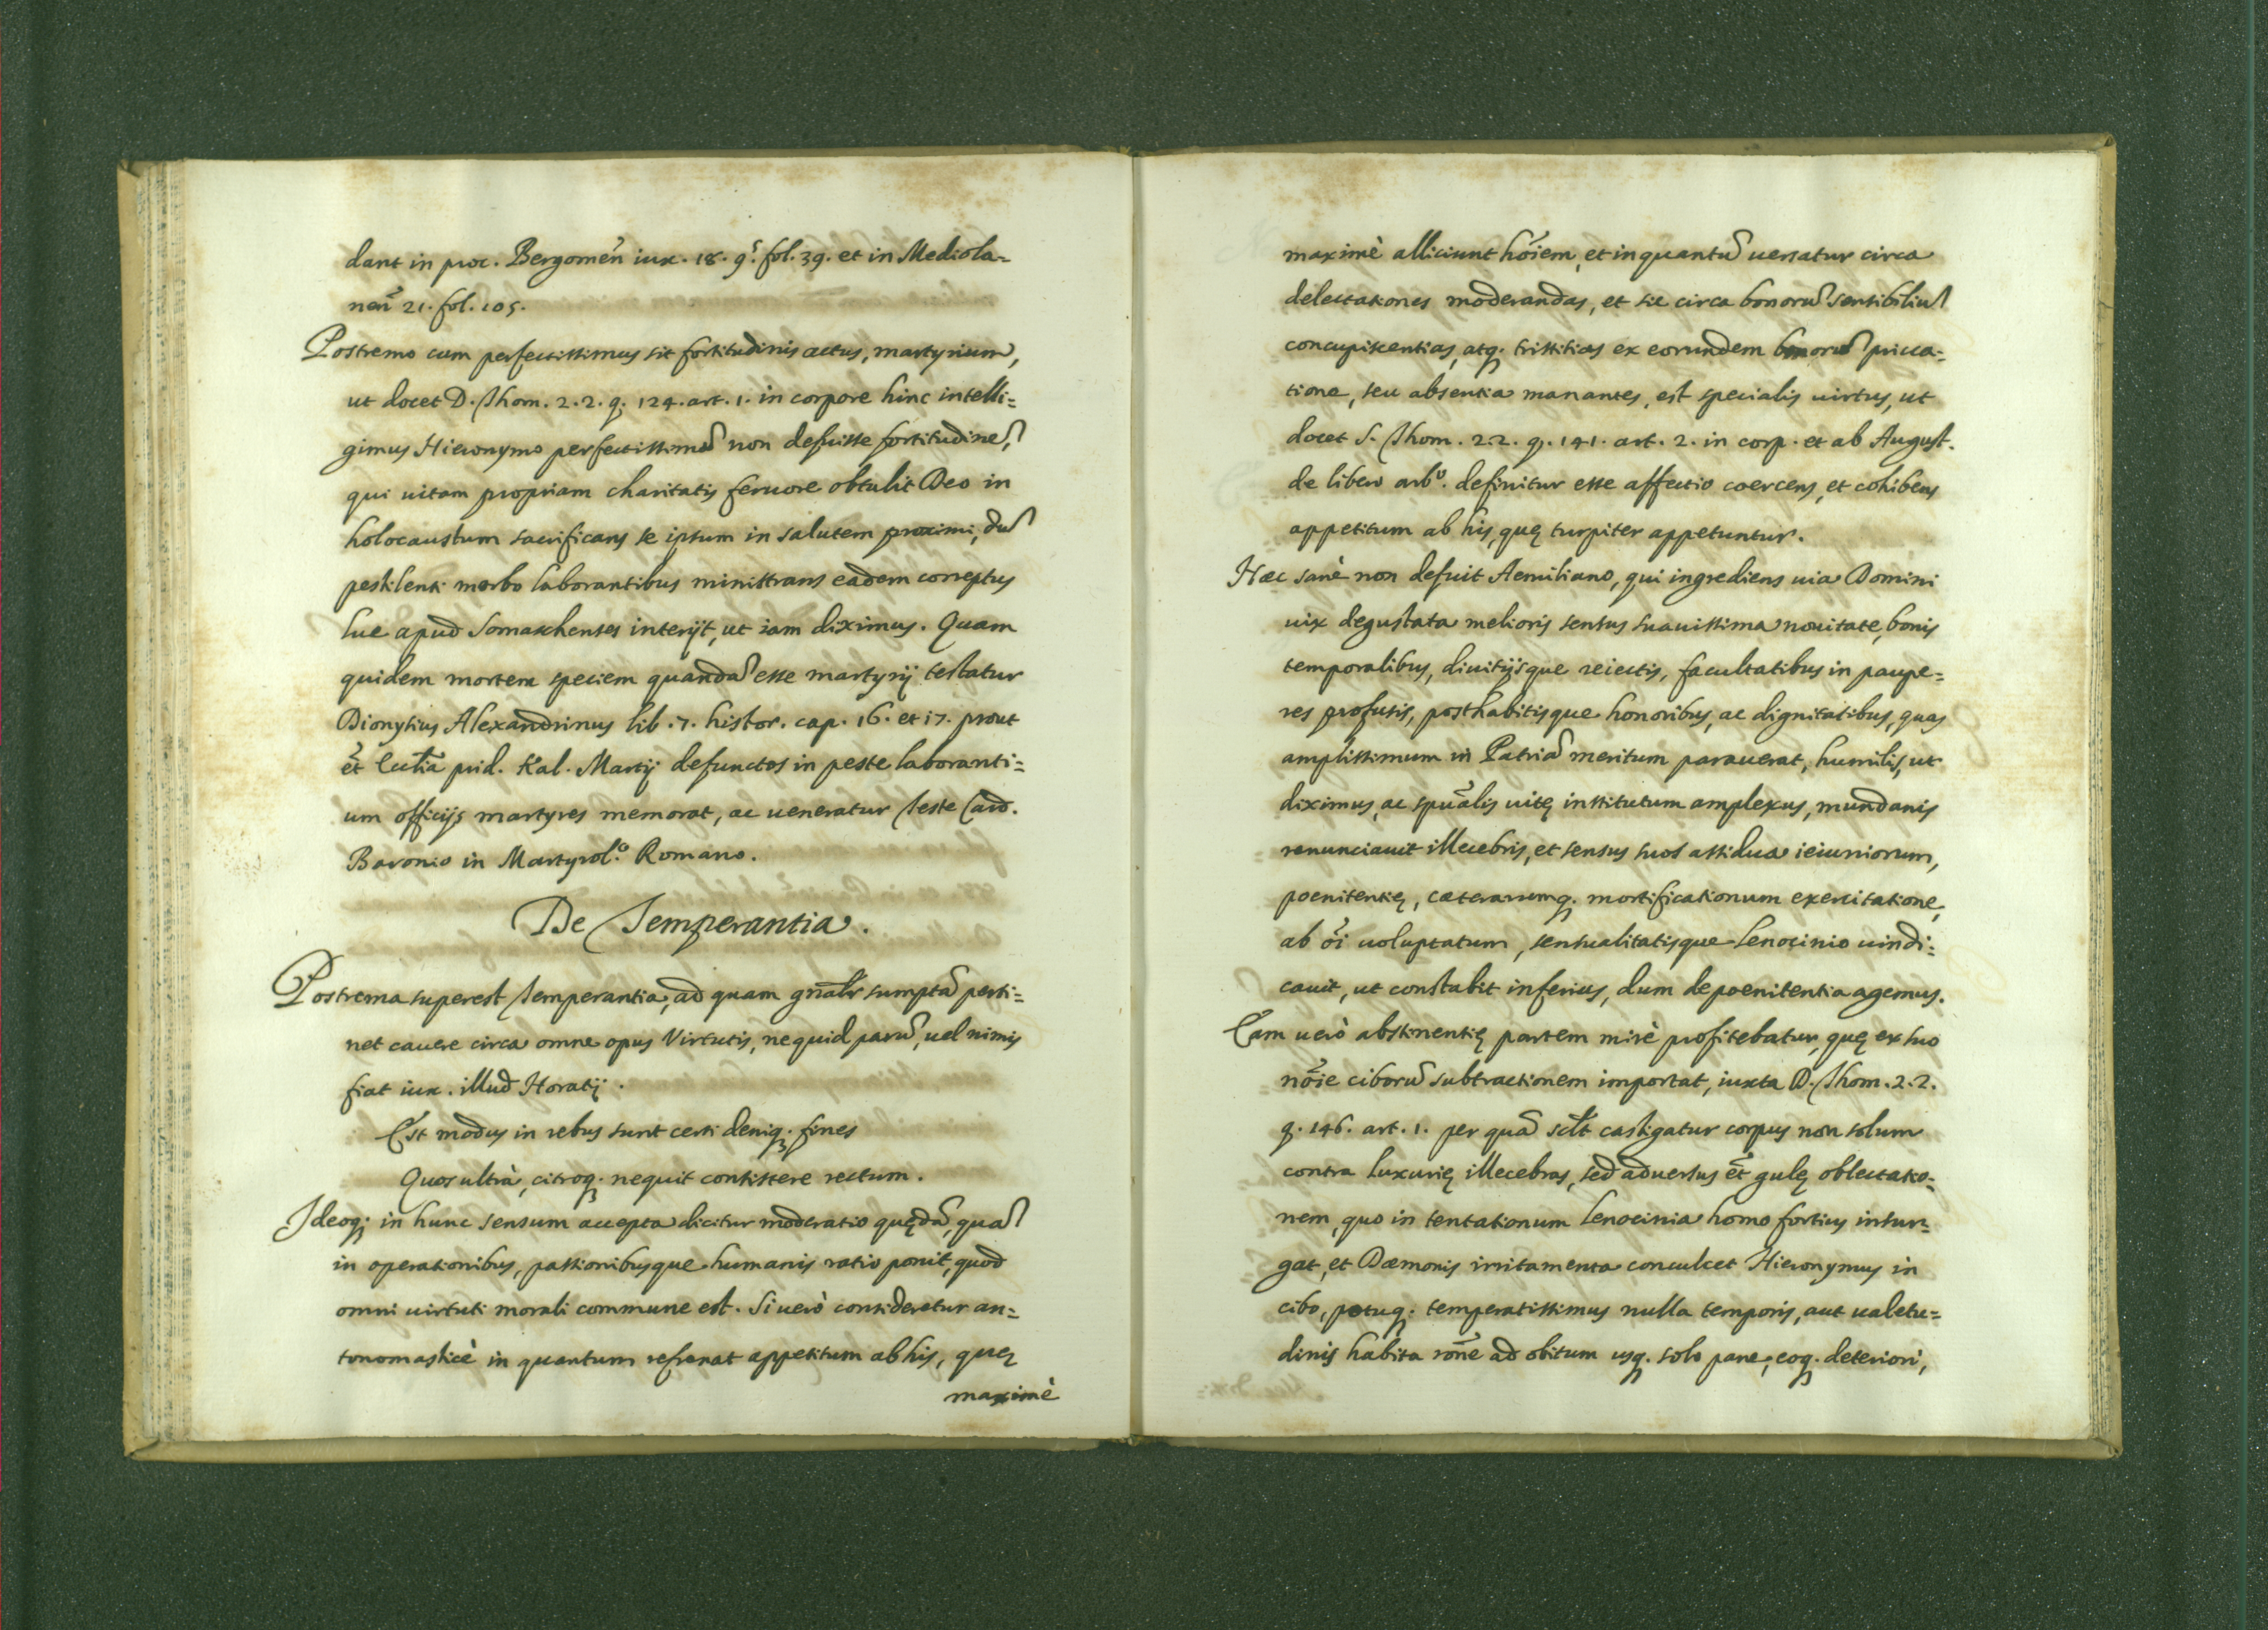 dant in proc. Bergomen̄ iux. 18. 9.ͬ fol. 39. et in Mediola=
nen̄ 21. fol. 105.
Postremo cum perfectissimus sit fortitudinis actus, martyrium,
ut docet D. Thom. 2. 2. q. 124. art. 1. in corpore hinc intelli=
gimus Hieronymo perfectissimā non defuisse fortitudinē,
qui uitam propriam charitatis feruore obtulit Deo in
holocaustum sacrificans se ipsum in salutem proximi, dū
pestilenti morbo laborantibus ministrans eadem correptus
lue apud Somaschenses interijt, ut iam diximus. Quam
quidem mortem speciem quandā esse martyrij testatur
Dionysius Alexandrinus lib. 7. histor. cap. 16. et 17. prout
et̄ Ecctīa prid. Kal. Martij defunctos in peste laboranti=
um officijs martyres memorat, ac ueneratur teste Card.
Baronio in Martyrol.º Romano.
De Temperantia.
Postrema superest temperantia, ad quam gn̄alr̄ sumptā perti=
net cauere circa omne opus Virtutis, nequid parū, uel nimis
fiat iux. illud Horatij.
Est modus in rebus sunt certi deniq. fines
Quos ultrà, citroq. nequit consistere rectum.
Ideoq; in hunc sensum accepta dicitur moderatio quędā, quā
in operationibus, passionibusque humanis ratio ponit, quod
omni uirtuti morali commune est. Si uerò consideretur an=
tonomasticè in quantum refrenat appetitum ab his, quę
maximè
maximè alliciunt hōiem, et inquantū uersatur circa
delectationes moderandas, et sic circa bonorū sensibiliū
concupiscentias, atq. tristitias ex eorundem bonorū priua=
tione, seu absentia manantes, est specialis uirtus, ut
docet S. Thom. 2.2. q. 141. art. 2. in corp. et ab August.
de libero arbº. definitur esse affectio coercens, et cohibens
appetitum ab his, quę turpiter appetuntur.
Hæc sanè non defuit Aemiliano, qui ingrediens uia Domini
uix degustata melioris sensus suauissima nouitate, bonis
temporalibus, diuitijsque reiectis, facultatibus in paupe=
res profusis, posthabitisque honoribus, ac dignitatibus, quas
amplissimum in Patriā meritum parauerat, humilis, ut
diximus, ac spūalis uitę institutum amplexus, mundanis
renunciauit illecebris, et sensus suos assidua ieiuniorum,
poenitentię, cæterarumq. mortificationum exercitatione,
ab ōi uoluptatum, sensualitatisque lenocinio uindi=
cauit, ut constabit inferius, dum de poenitentia agemus.
Eam uerò abstinentię partem mirè profitebatur, quę ex suo
nōie ciborū subtractionem importat, iuxta D. Thom. 2.2.
q. 146. art. 1. per quā scłt castigatur corpus non solum
contra luxurię illecebras, sed aduersus et̄ gulę oblectatio=
nem, quo in tentationum lenocinia homo fortius insur=
gat, et Dæmonis irritamenta conculcet Hieronymus in
cibo, potuq. temperatissimus nulla temporis, aut ualetu=
dinis habita rōne ad obitum usq. solo pane, eoq. deteriori,